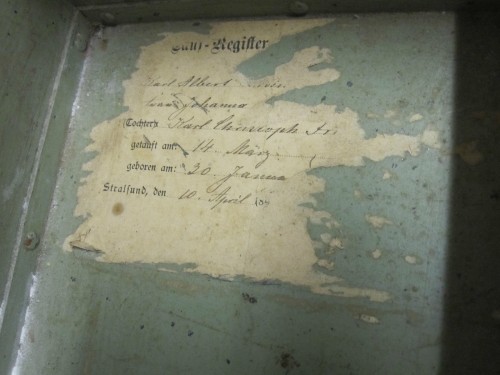 Tauf-Register
Karl Albert
Johanna
(Tochter): Karl Christoph
getauft am: 14 März
geboren am: 20. Janua
Stralsund, den 10. April